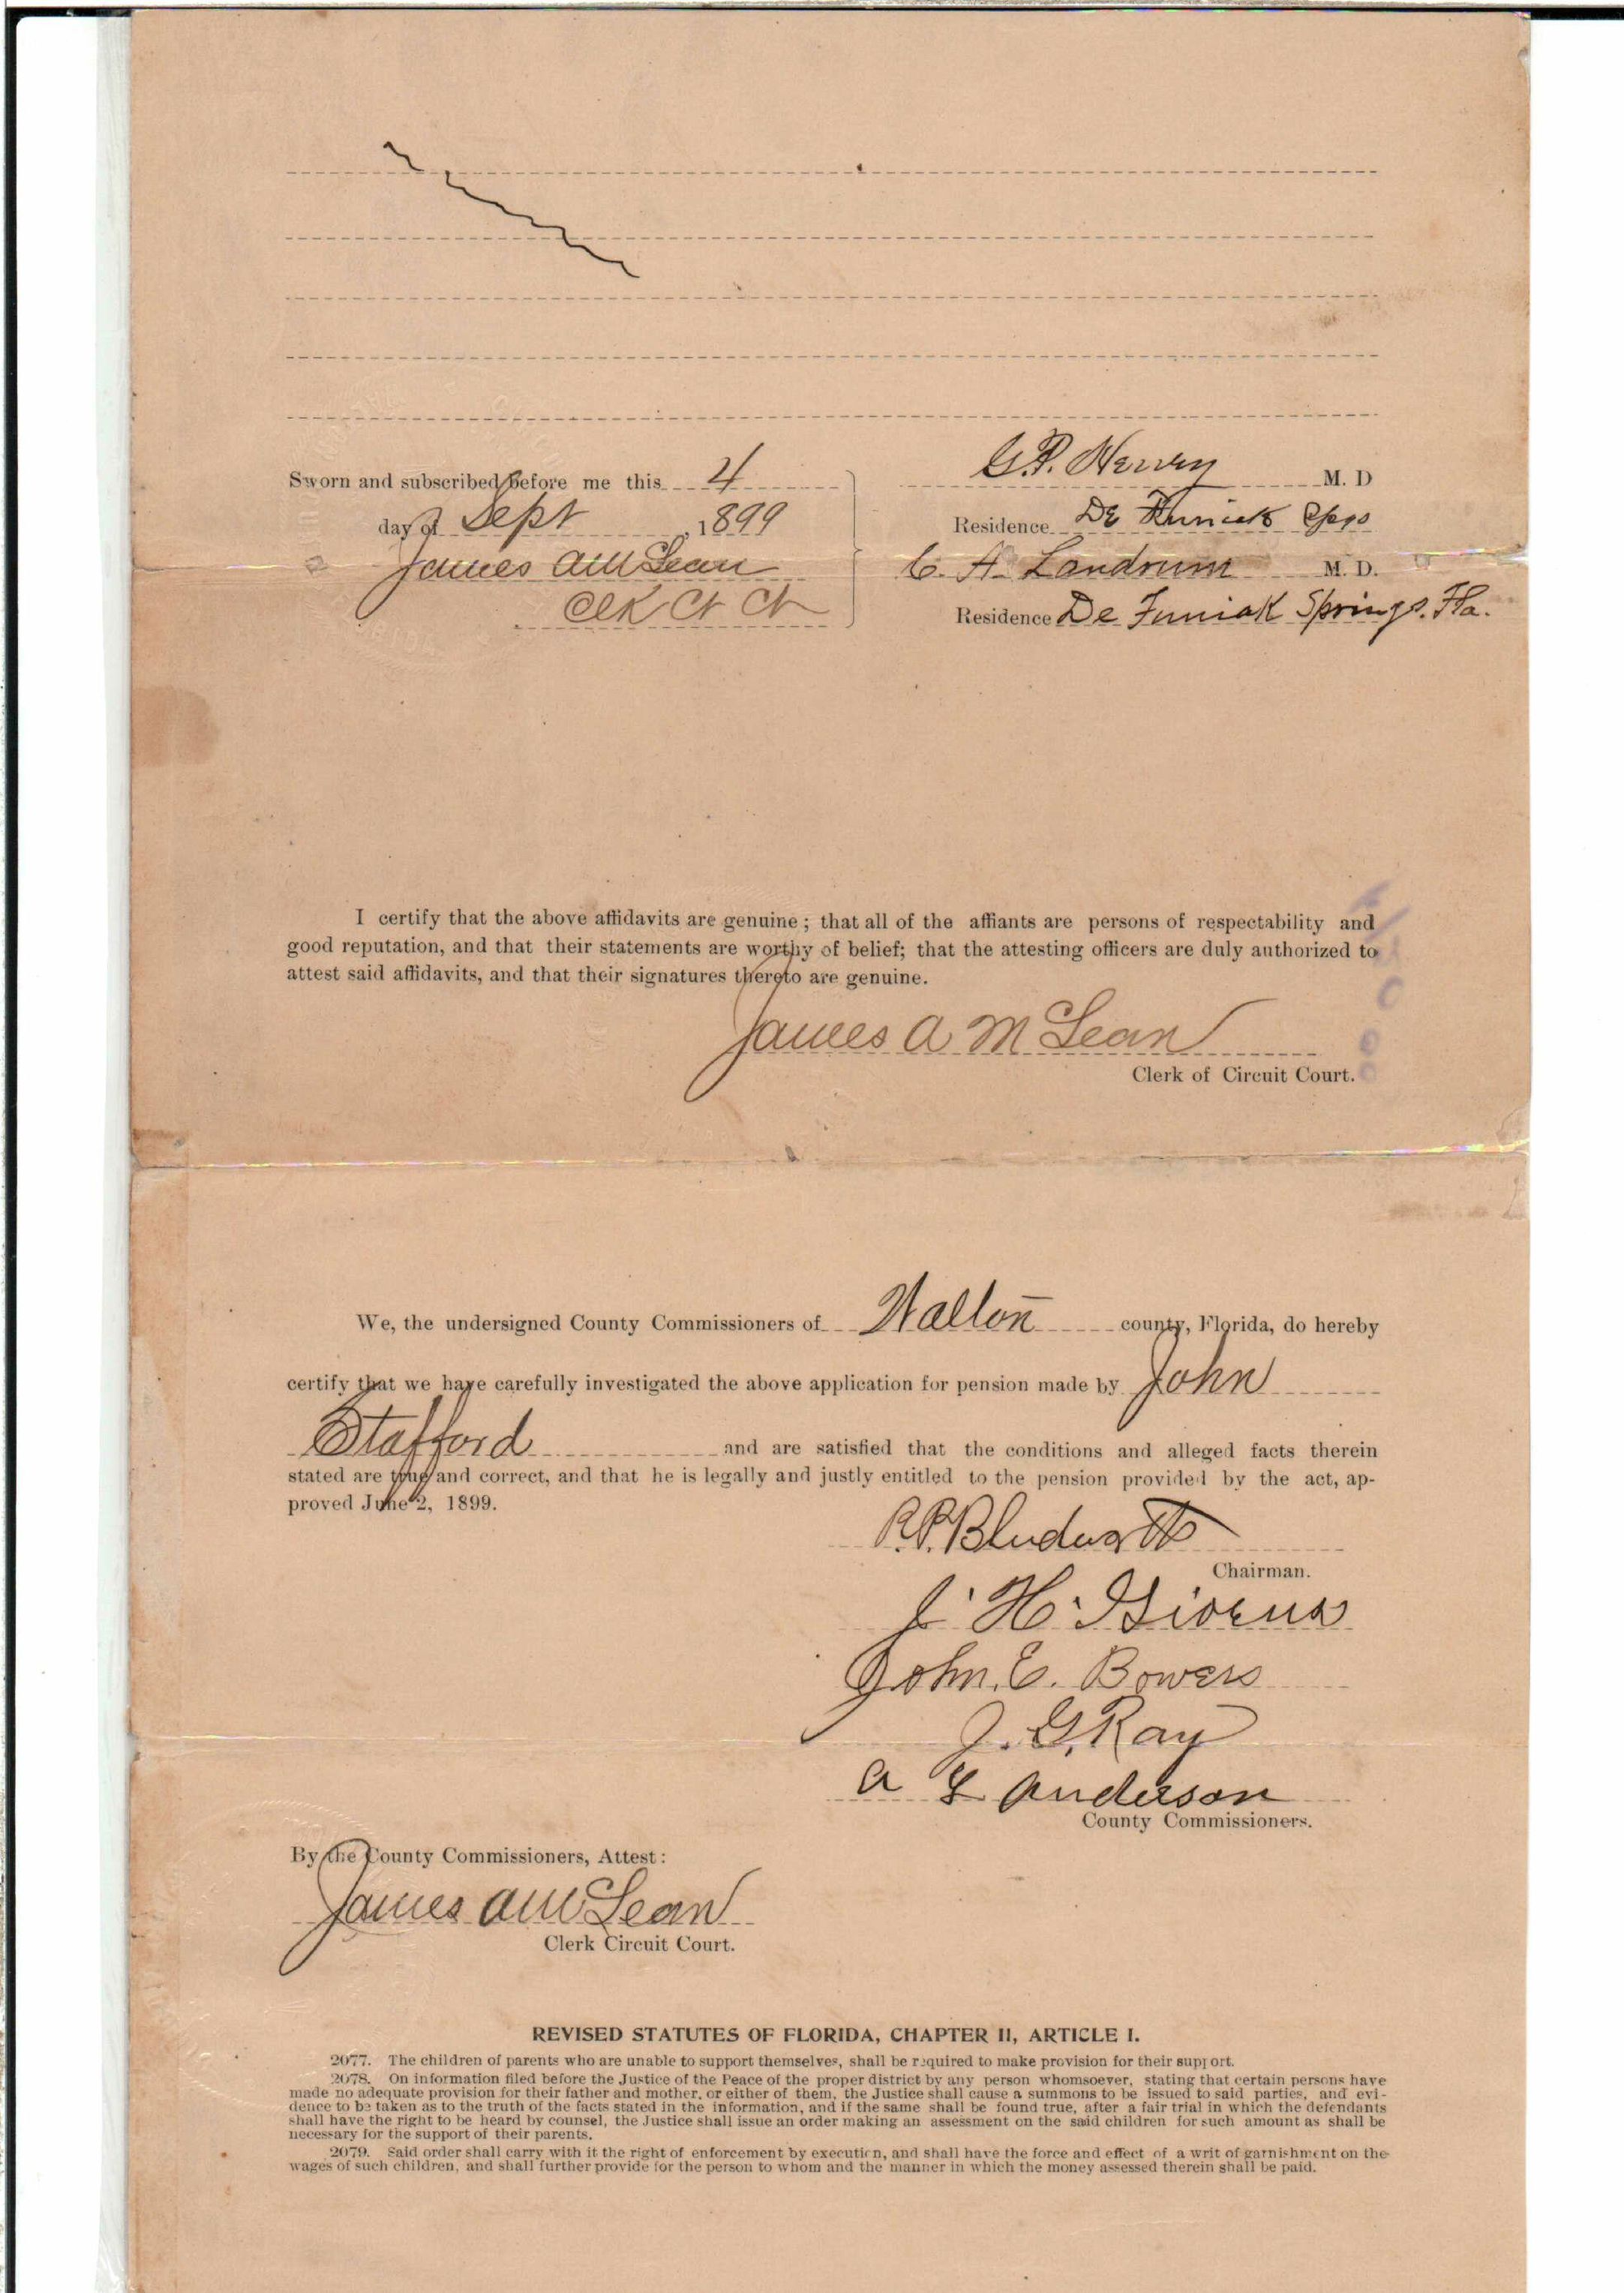 Sworn and subscribed before me this 4
day of Sept, 1899
James A McLean
Clk Ct Ct
G.P. Henry M. D
Residence De Funiak Spgs
C. A. Landrum M. D.
Residence De Funiak Springs. Fla.
I certify that the above affidavits are genuine; that all of the affiants are persons of respectability and
good reputation, and that their statements are worthy of belief; that the attesting officers are duly authorized to
attest said affidavits, and that their signatures thereto are genuine.
James A McLean
Clerk of Circuit Court.
We, the undersigned County Commissioners of Walton county, Florida, do hereby
certify that we have carefully investigated the above application for pension made by John
Stafford and are satisfied that the conditions and alleged facts therein
stated are true and correct, and that he is legally and justly entitled to the pension provided by the act, ap-
proved June 2, 1899.
R.P. Bludworth
Chairman.
J. H.
John. E. Bowers
J. G. Ray
A L Anderson
County Commissioners.
By the County Commissioners, Attest:
James A McLean
Clerk Circuit Court.
REVISED STATUTES OF FLORIDA, CHAPTER II, ARTICLE I.
2077. The children of parents who are unable to support themselves, shall be required to make provision for their support.
2078. On information filed before the Justice of the Peace of the proper district by any person whomsoever, stating that certain persons have
made no adequate provision for their father and mother, or either of them, the Justice shall cause a summons to be issued to said parties, and evi-
dence to be taken as to the truth of the facts stated in the information, and if the same shall be found true, after a fair trial in which the defendants
shall have the right to be heard by counsel, the Justice shall issue an order making an assessment on the said children for such amount as shall be
necessary for the support of their parents.
2079. Said order shall carry with it the right of enforcement by execution, and shall have the force and effect of a writ of garnishment on the
wages of such children, and shall further provide for the person to whom and the manner in which the money assessed therein shall be paid.